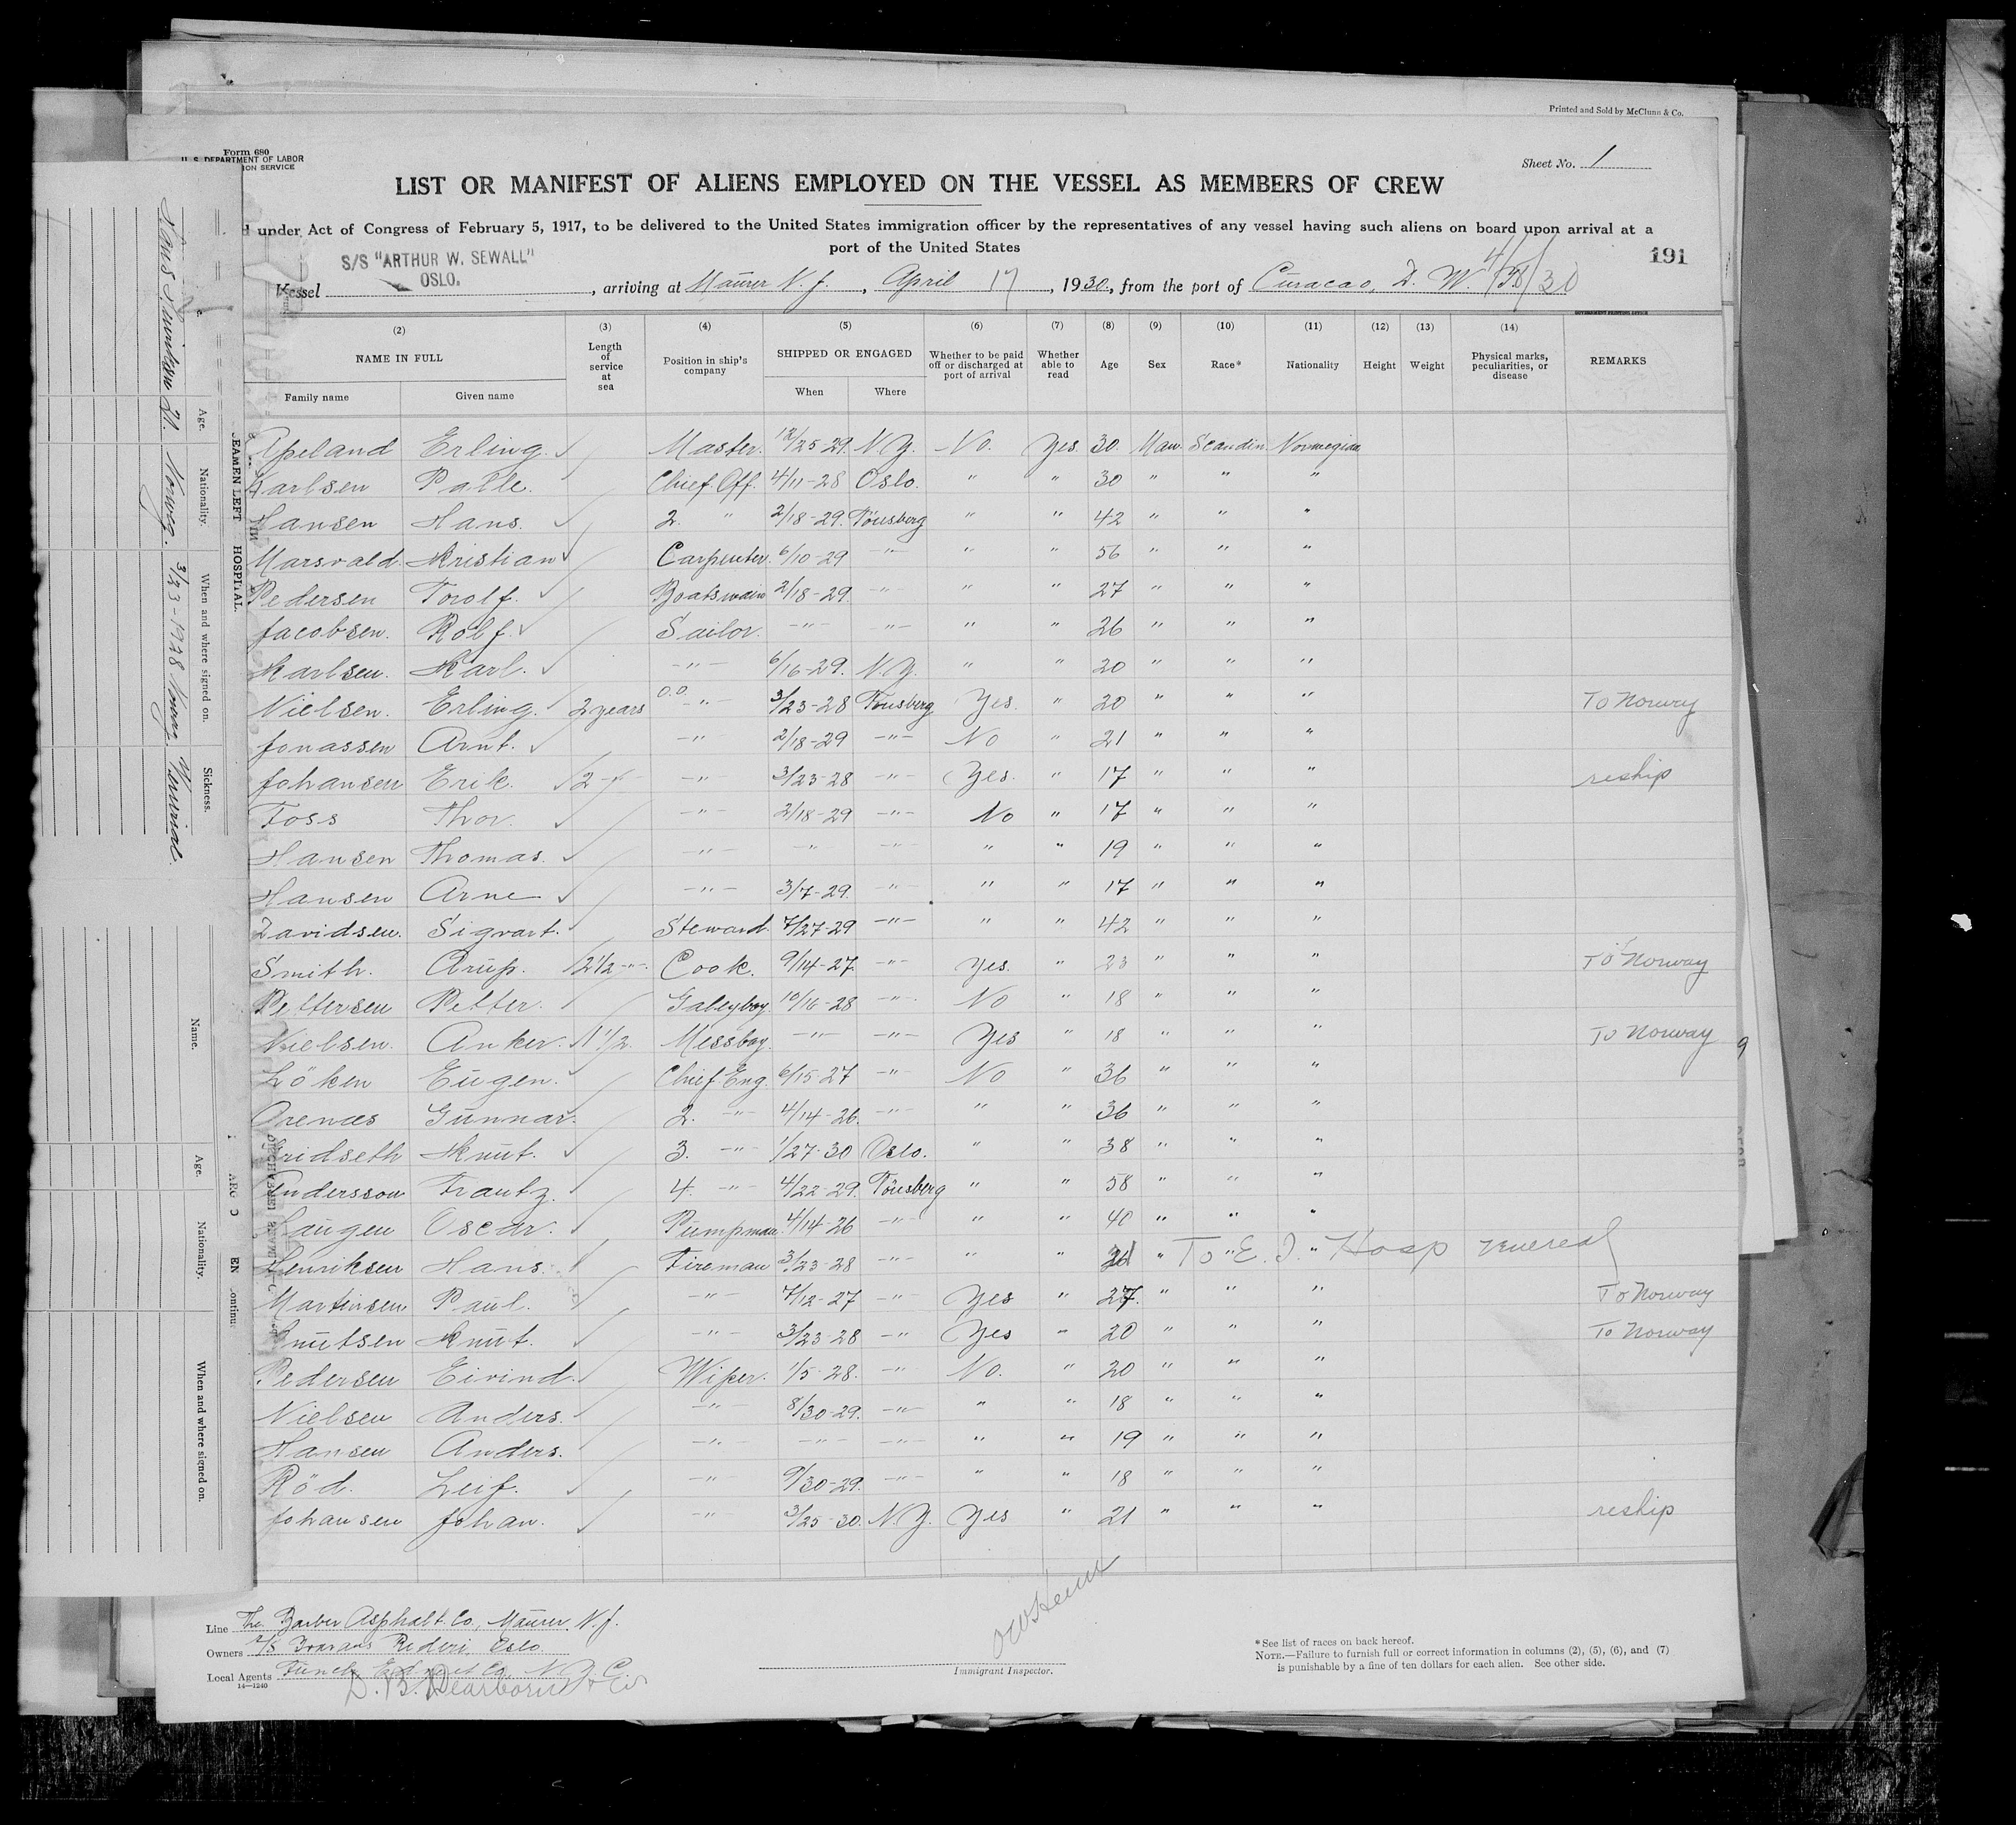 Printed and Sold by McClunn & Co.
Form 680
U. S. DEPARTMENT OF LABOR
ION SERVICE
Sheet No. 1
LIST OR MANIFEST OF ALIENS EMPLOYED ON THE VESSEL AS MEMBERS OF CREW
under Act of Congress of February 5, 1917, to be delivered to the United States immigration officer by the representatives of any vessel having such aliens on board upon arrival at a
port of the United States
191
S/S "ARTHUR W. SEWALL"
OSLO.
Vessel , arriving at Maurer N. J. , April 17 , 1930, from the port of Curacao, D. W.
(2) (3) (4) (5) (6) (7) (8) (9) (10) (11) (12) (13) (14)
NAME IN FULL Length of service at sea Position in ship's company SHIPPED OR ENGAGED Whether to be paid off or discharged at port of arrival Whether able to read Age Sex Race* Nationality Height Weight Physical marks, peculiarities, or disease REMARKS
Family name Given name When Where
Apeland Erling. Master. 12/25-29. N.Y. No. Yes. 30. Man. Scandin. Norwegian
Karlsen Palle. Chief Off. 4/11-28 Oslo. " " 30 " " "
Hansen Hans. 2. " 2/18-29. Tönsberg " " 42 " " "
Marsvald. Kristian Carpenter. 6/10-29 -"- " " 56 " " "
Pedersen Torolf. Boatswain 2/18-29. -"- " " 27 " " "
Jacobsen. Rolf. Sailor. -"- -"- " " 26 " " "
Karlsen. Karl. -"- 6/16-29. N.Y. " " 20 " " "
Nielsen. Erling. 2 years O.O -"- 3/23-28 Tönsberg Yes. " 20 " " " To Norwry
Jonassen Arnt. -"- 2/18-29 -"- No " 21 " " "
Johansen Erik. 2 -"- -"- 3/23-28 -"- Yes. " 17 " " " reship
Foss Thor. -"- 2/18-29 -"- No " 17 " " "
Hansen Thomas. -"- -"- -"- " " 19 " " "
Hansen Arne -"- 3/7-29. -"- " " 17 " " "
Davidsen. Sigvart. Steward. 7/27-29 -"- " " 42 " " "
Smith. Arup. 2 1/2 -"- Cook. 9/14-27. -"- Yes. " 23 " " " To Norway
Pettersen Petter. Galeyboy. 10/16-28 -"- No " 18 " " "
Nielsen. Anker. 1 1/2. Messboy. -"- -"- Yes " 18 " " " To Norway
Löken Eugen. Chief Eng. 6/15-27 -"- No " 36 " " "
Orenæs Gunnar. 2. -"- 4/14-26. -"- " " 36 " " "
ridseth Knut. 3. -"- 1/27-30 Oslo. " " 38 " " "
Andersson Frantz. 4. -"- 4/22-29. Tönsberg " " 58 " " "
Haugen Oscar. Pumpman. 4/14-26 -"- " " 40 " " "
Henriksen Hans. Fireman 3/23-28 -"- " " 21 " To E. I. Hosp venereal
Martinsen Paul. -"- 7/12-27 -"- Yes " 27. " " " To Norway
Knutsen Knut. -"- 3/23-28 -"- Yes " 20 " " " To Norway
Pedersen Eivind. Wiper. 1/5-28. -"- No. " 20 " " "
Nielsen Anders. -"- 8/30-29. -"- " " 18 " " "
Hansen Anders. -"- -"- -"- " " 19 " " "
Röd. Leif. -"- 9/30-29. -"- " " 18 " " "
Johansen Johan. -"- 3/25-30. N.Y. Yes " 21 " " " reship
Line The Barber Asphalt Co., Maurer. N. J.
Owners Rederi, Oslo.
Local Agents Funch Edye & Co. N.Y.C.
D. B. Dearborn & Co
14—1240
Immigrant Inspector.
*See list of races on back hereof.
NOTE.—Failure to furnish full or correct information in columns (2), (5), (6), and (7)
is punishable by a fine of ten dollars for each alien. See other side.
Age. Nationality. When and where signed on. Sickness.
Hans Henriksen 21. Norweg. 3/23-1928 Norway Venerial.
SEAMEN LEFT HOSPITAL.
Name. Age. Nationality. When and where signed on.